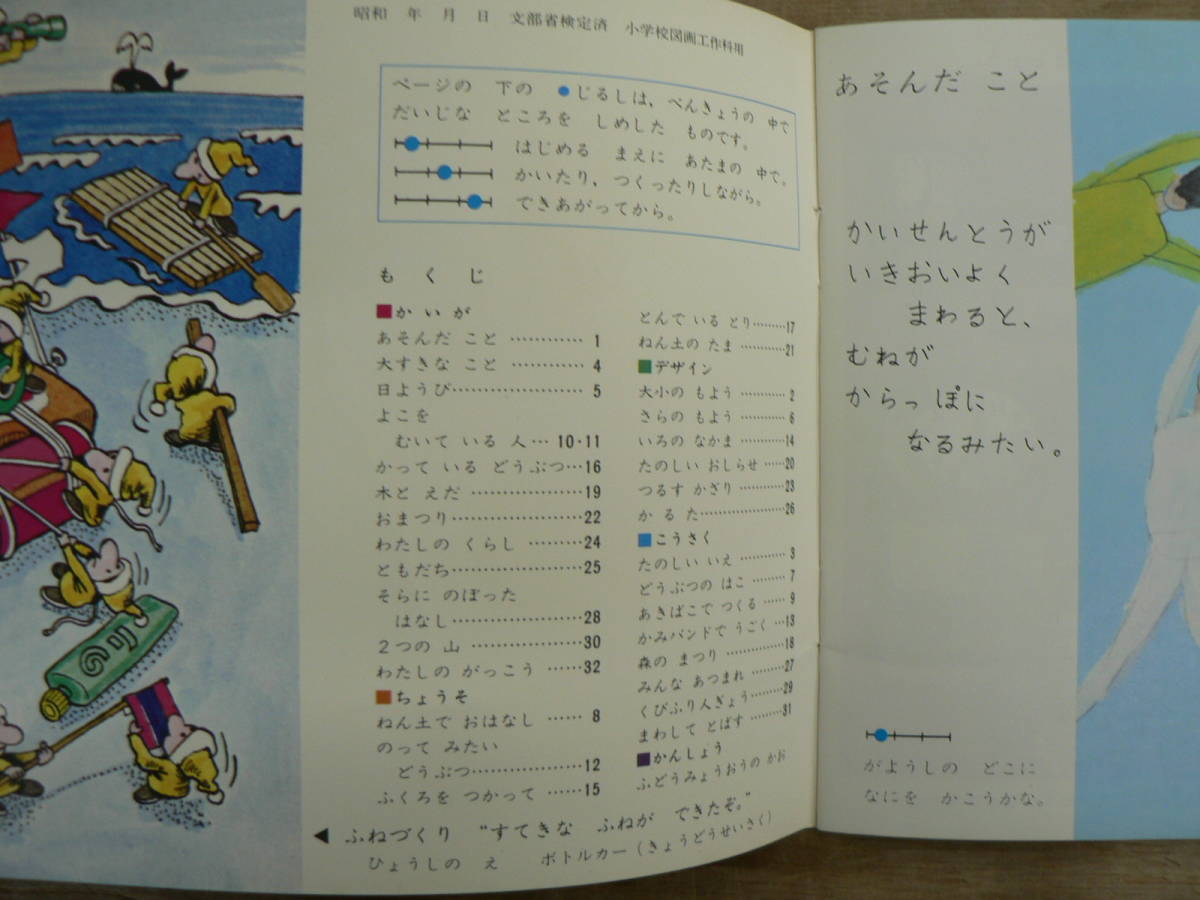 昭和 年 月 日 文部省検定済 小学校図画工作科用
ページの 下の ●じるしは、べんきょうの 中で
だいじな ところを しめした ものです。
はじめる まえに あたまの 中で。
かいたり、つくったりしながら。
できあがってから。
もくじ
■かいが
あそんだ こと …………1
大すきな こと …………4
日ようび…………………5
よこを
むいて いる 人…10・11
かって いる どうぶつ…16
木と えだ ………………19
おまつり…………………22
わたしの くらし ………24
ともだち…………………25
そらに のぼった
はなし…………………28
2つの 山 ………………30
わたしの がっこう ……32
■ちょうそ
ねん土で おはなし ……8
のって みたい
どうぶつ………………12
ふくろを つかって ……15
とんで いる とり………17
ねん土の たま …………21
■デザイン
大小の もよう …………2
さらの もよう …………6
いろの なかま …………14
たのしい おしらせ ……20
つるす かざり …………23
かるた……………………26
■こうさく
たのしい いえ …………3
どうぶつの はこ ………7
あきばこで つくる ……9
かみバンドで うごく …13
森の まつり ……………18
みんな あつまれ ………27
くびふり人ぎょう………29
まわして とばす ………31
■かんしょう
ふどうみょうおうの かお
◀ ふねづくり “すてきな ふねが できたぞ。”
ひょうしの え ボトルカー(きょうどうせいさく)
のり
あそんだ こと
かいせんとうが
いきおいよく
まわると、
むねが
からっぽに
なるみたい。
がようしの どこに
なにを かこうかな。